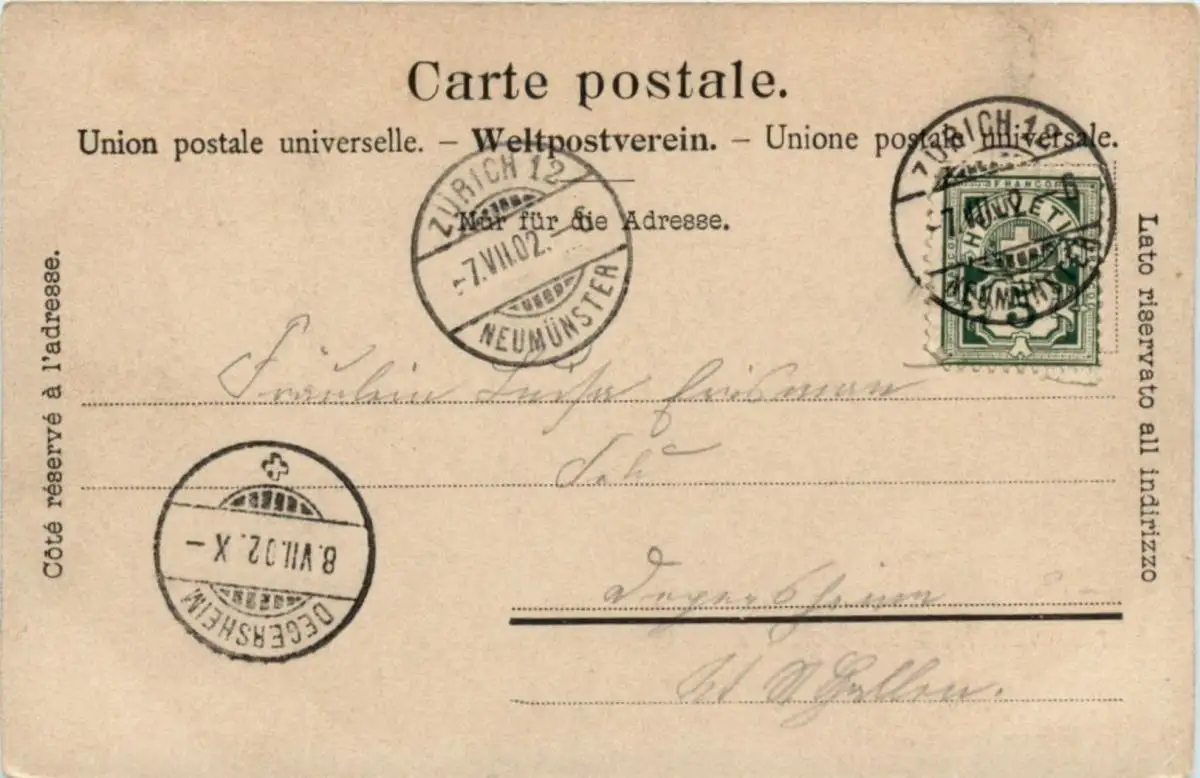 Carte postale.
Union postale universelle. – Weltpostverein. – Unione postale universale.
Nur für die Adresse.
Côté réservé à l'adresse.
Lato riservato all indirizzo
ZÜRICH 12
-7.VII.02.-6
NEUMÜNSTER
ZÜRICH 12
7.VII.02-6
NEUMÜNSTER
FRANCO
HELVETIA
5
Fräulein
Degersheim
Kt St Gallen.
8.VII.02.X-
DEGERSHEIM